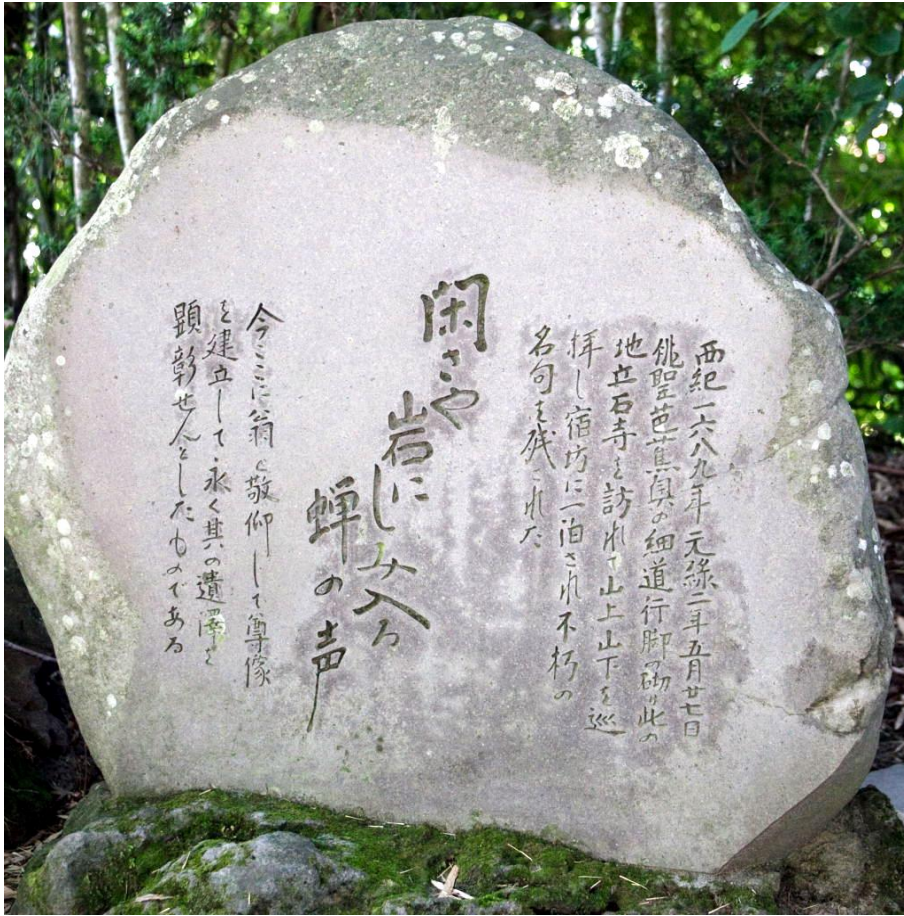 西紀一六八九年元祿二年五月廿七日
俳聖芭蕉奥の細道行脚の砌り此の
地立石寺を訪れて山上山下を巡
拝し宿坊に一泊され不朽の
名句を残された
閑さや
岩に
しみ入る
蝉の声
今ここに翁を敬仰して尊像
を建立して永く其の遺澤を
顕彰せんとしたものである